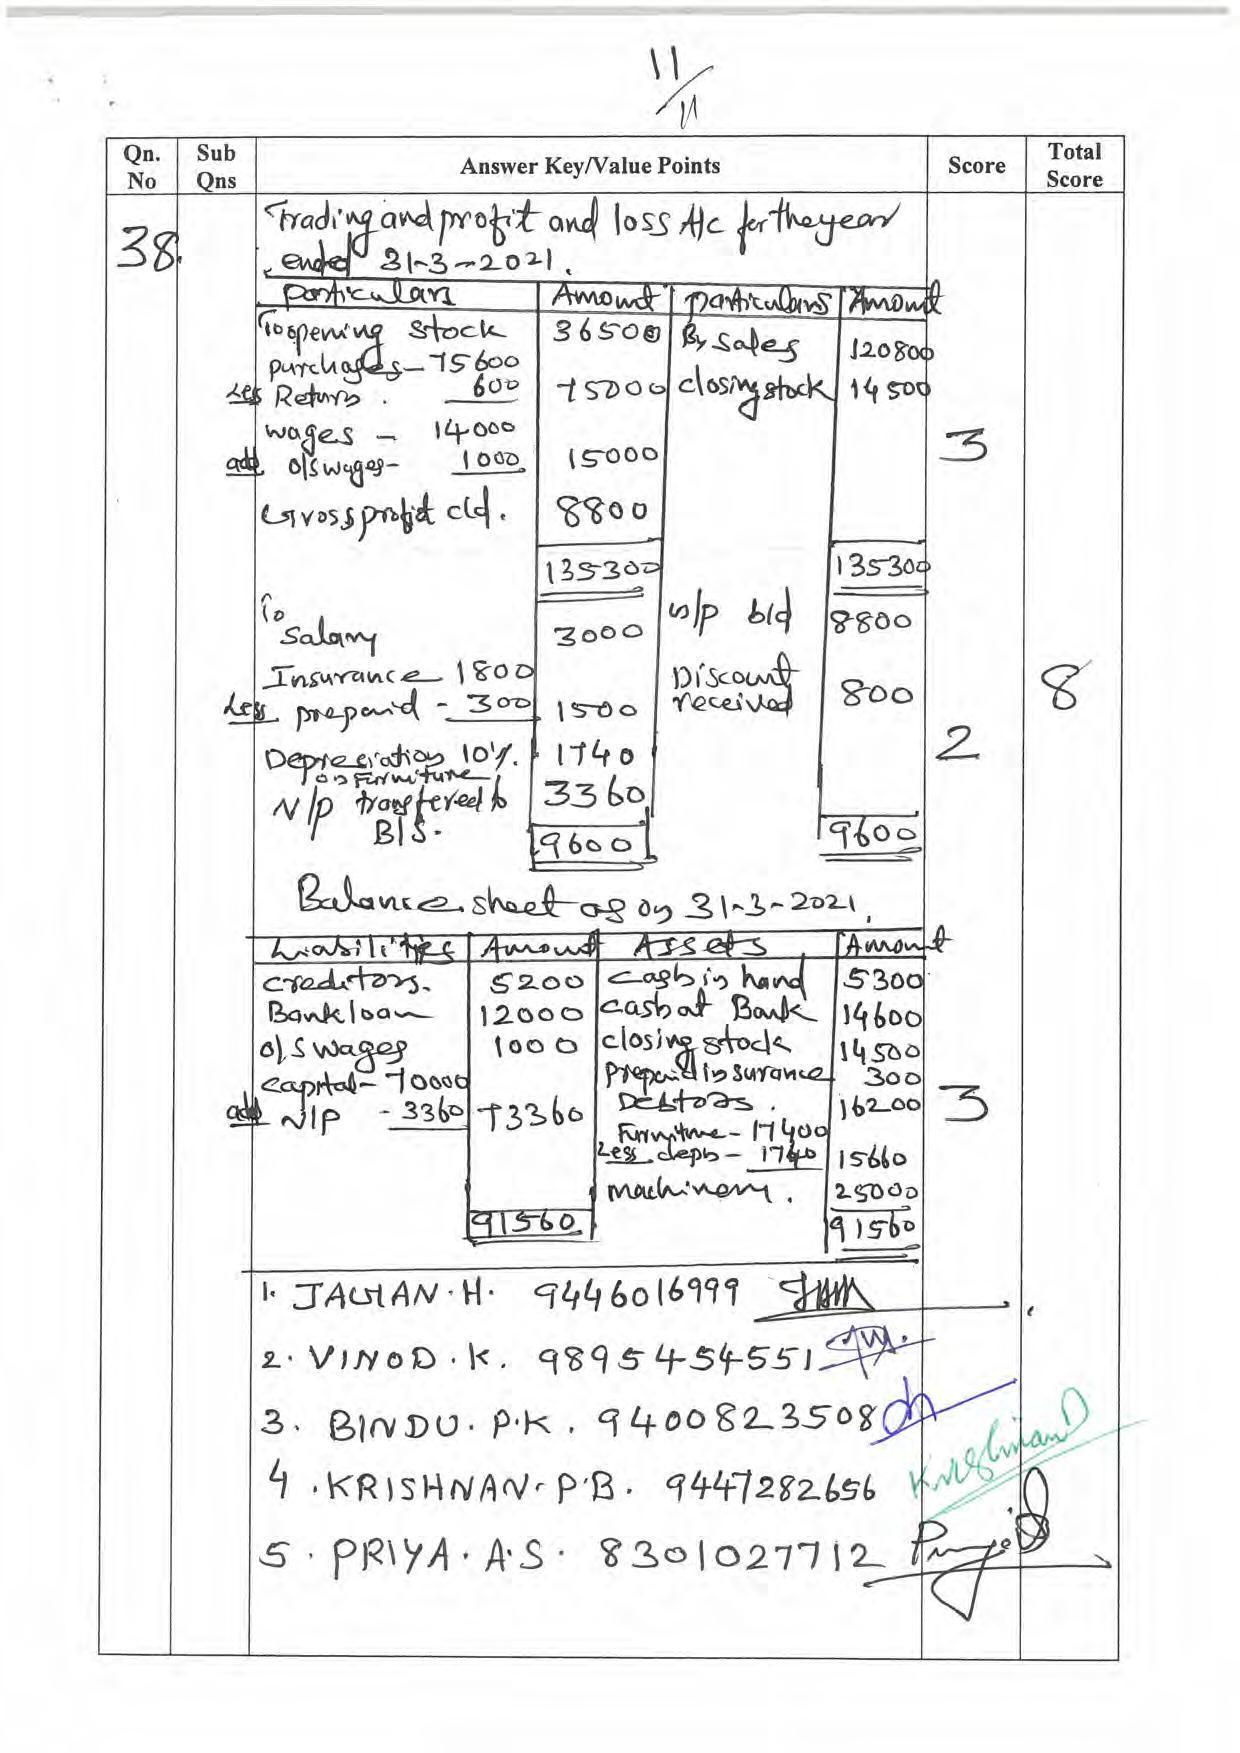 11/11
Qn. No Sub Qns Answer Key/Value Points Score Total Score
38. Trading and profit and loss A/c for the year
ended 31-3-2021.
particulars Amount particulars Amount
To opening stock 36500 By Sales 120800
purchases - 75600
Less Return. 600 75000 closing stock 14500
wages - 14000
add o/s wages - 1000 15000 3
Gross profit c/d. 8800
135300 135300
To Salary 3000 G/p b/d 8800
Insurance 1800 Discount
Less prepaid - 300 1500 received 800 8
Depreciation 10%. 1740 2
on Furniture
N/p transfered to 3360
B/S. 9600 9600
Balance sheet as on 31-3-2021.
Liabilities Amount Assets Amount
creditors. 5200 cash in hand 5300
Bank loan 12000 cash at Bank 14600
o/s wages 1000 closing stock 14500
capital - 70000 prepaid insurance 300
add N/P - 3360 73360 Debtors. 16200 3
Furniture - 17400
Less depn - 1740 15660
machinery. 25000
91560 91560
1. JALJAN.H. 9446016999
2. VINOD.K. 9895454551
3. BINDU.P.K. 9400823508
4. KRISHNAN.P.B. 9447282656
5. PRIYA.A.S. 8301027712